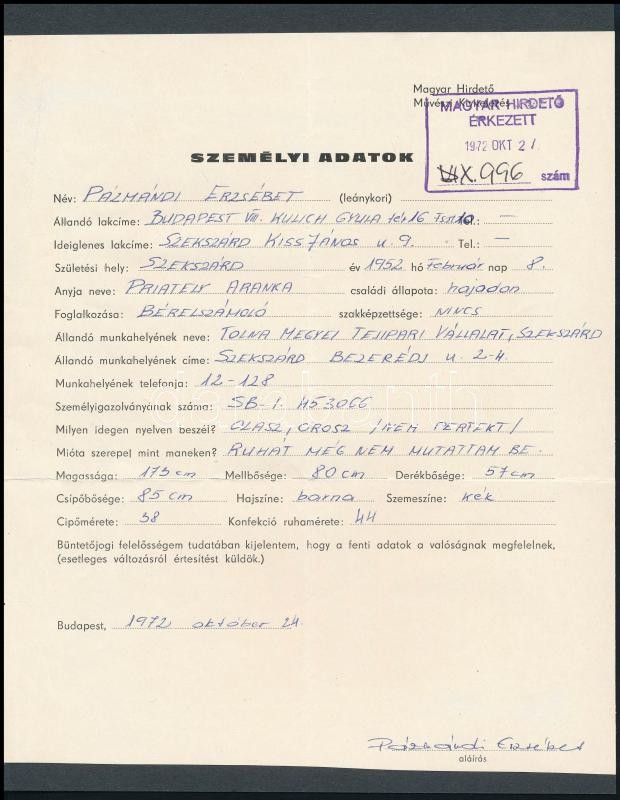 Magyar Hirdető
Művészi Kivitelezés
MAGYAR HIRDETŐ
ÉRKEZETT
1972 OKT 2
996 szám
SZEMÉLYI ADATOK
Név: PÁZMÁNDI ERZSÉBET (leánykori)
Állandó lakcíme: BUDAPEST VIII. KULICH GYULA tér 16 Tel.: —
Ideiglenes lakcíme: SZEKSZÁRD KISS JÁNOS u. 9. Tel.: —
Születési hely: SZEKSZÁRD év 1952 hó Február nap 8.
Anyja neve: PRIATELY ARANKA családi állapota: hajadon
Foglalkozása: BÉRELSZÁMOLÓ szakképzettsége: NINCS
Állandó munkahelyének neve: TOLNA MEGYEI TEJIPARI VÁLLALAT, SZEKSZÁRD
Állandó munkahelyének címe: SZEKSZÁRD BEZERÉDJ u. 2-4.
Munkahelyének telefonja: 12-128
Személyigazolványának száma: SB-I. 453066
Milyen idegen nyelven beszél? OLASZ, OROSZ /NEM PERFEKT/
Mióta szerepel mint maneken? RUHÁT MÉG NEM MUTATTAM BE.
Magassága: 173 cm Mellbősége: 80 cm Derékbősége: 57 cm
Csípőbősége: 85 cm Hajszíne: barna Szemeszíne: kék
Cipőmérete: 38 Konfekció ruhamérete: 44
Büntetőjogi felelősségem tudatában kijelentem, hogy a fenti adatok a valóságnak megfelelnek,
(esetleges változásról értesítést küldök.)
Budapest, 1972 október 24.
Pázmándi Erzsébet
aláírás